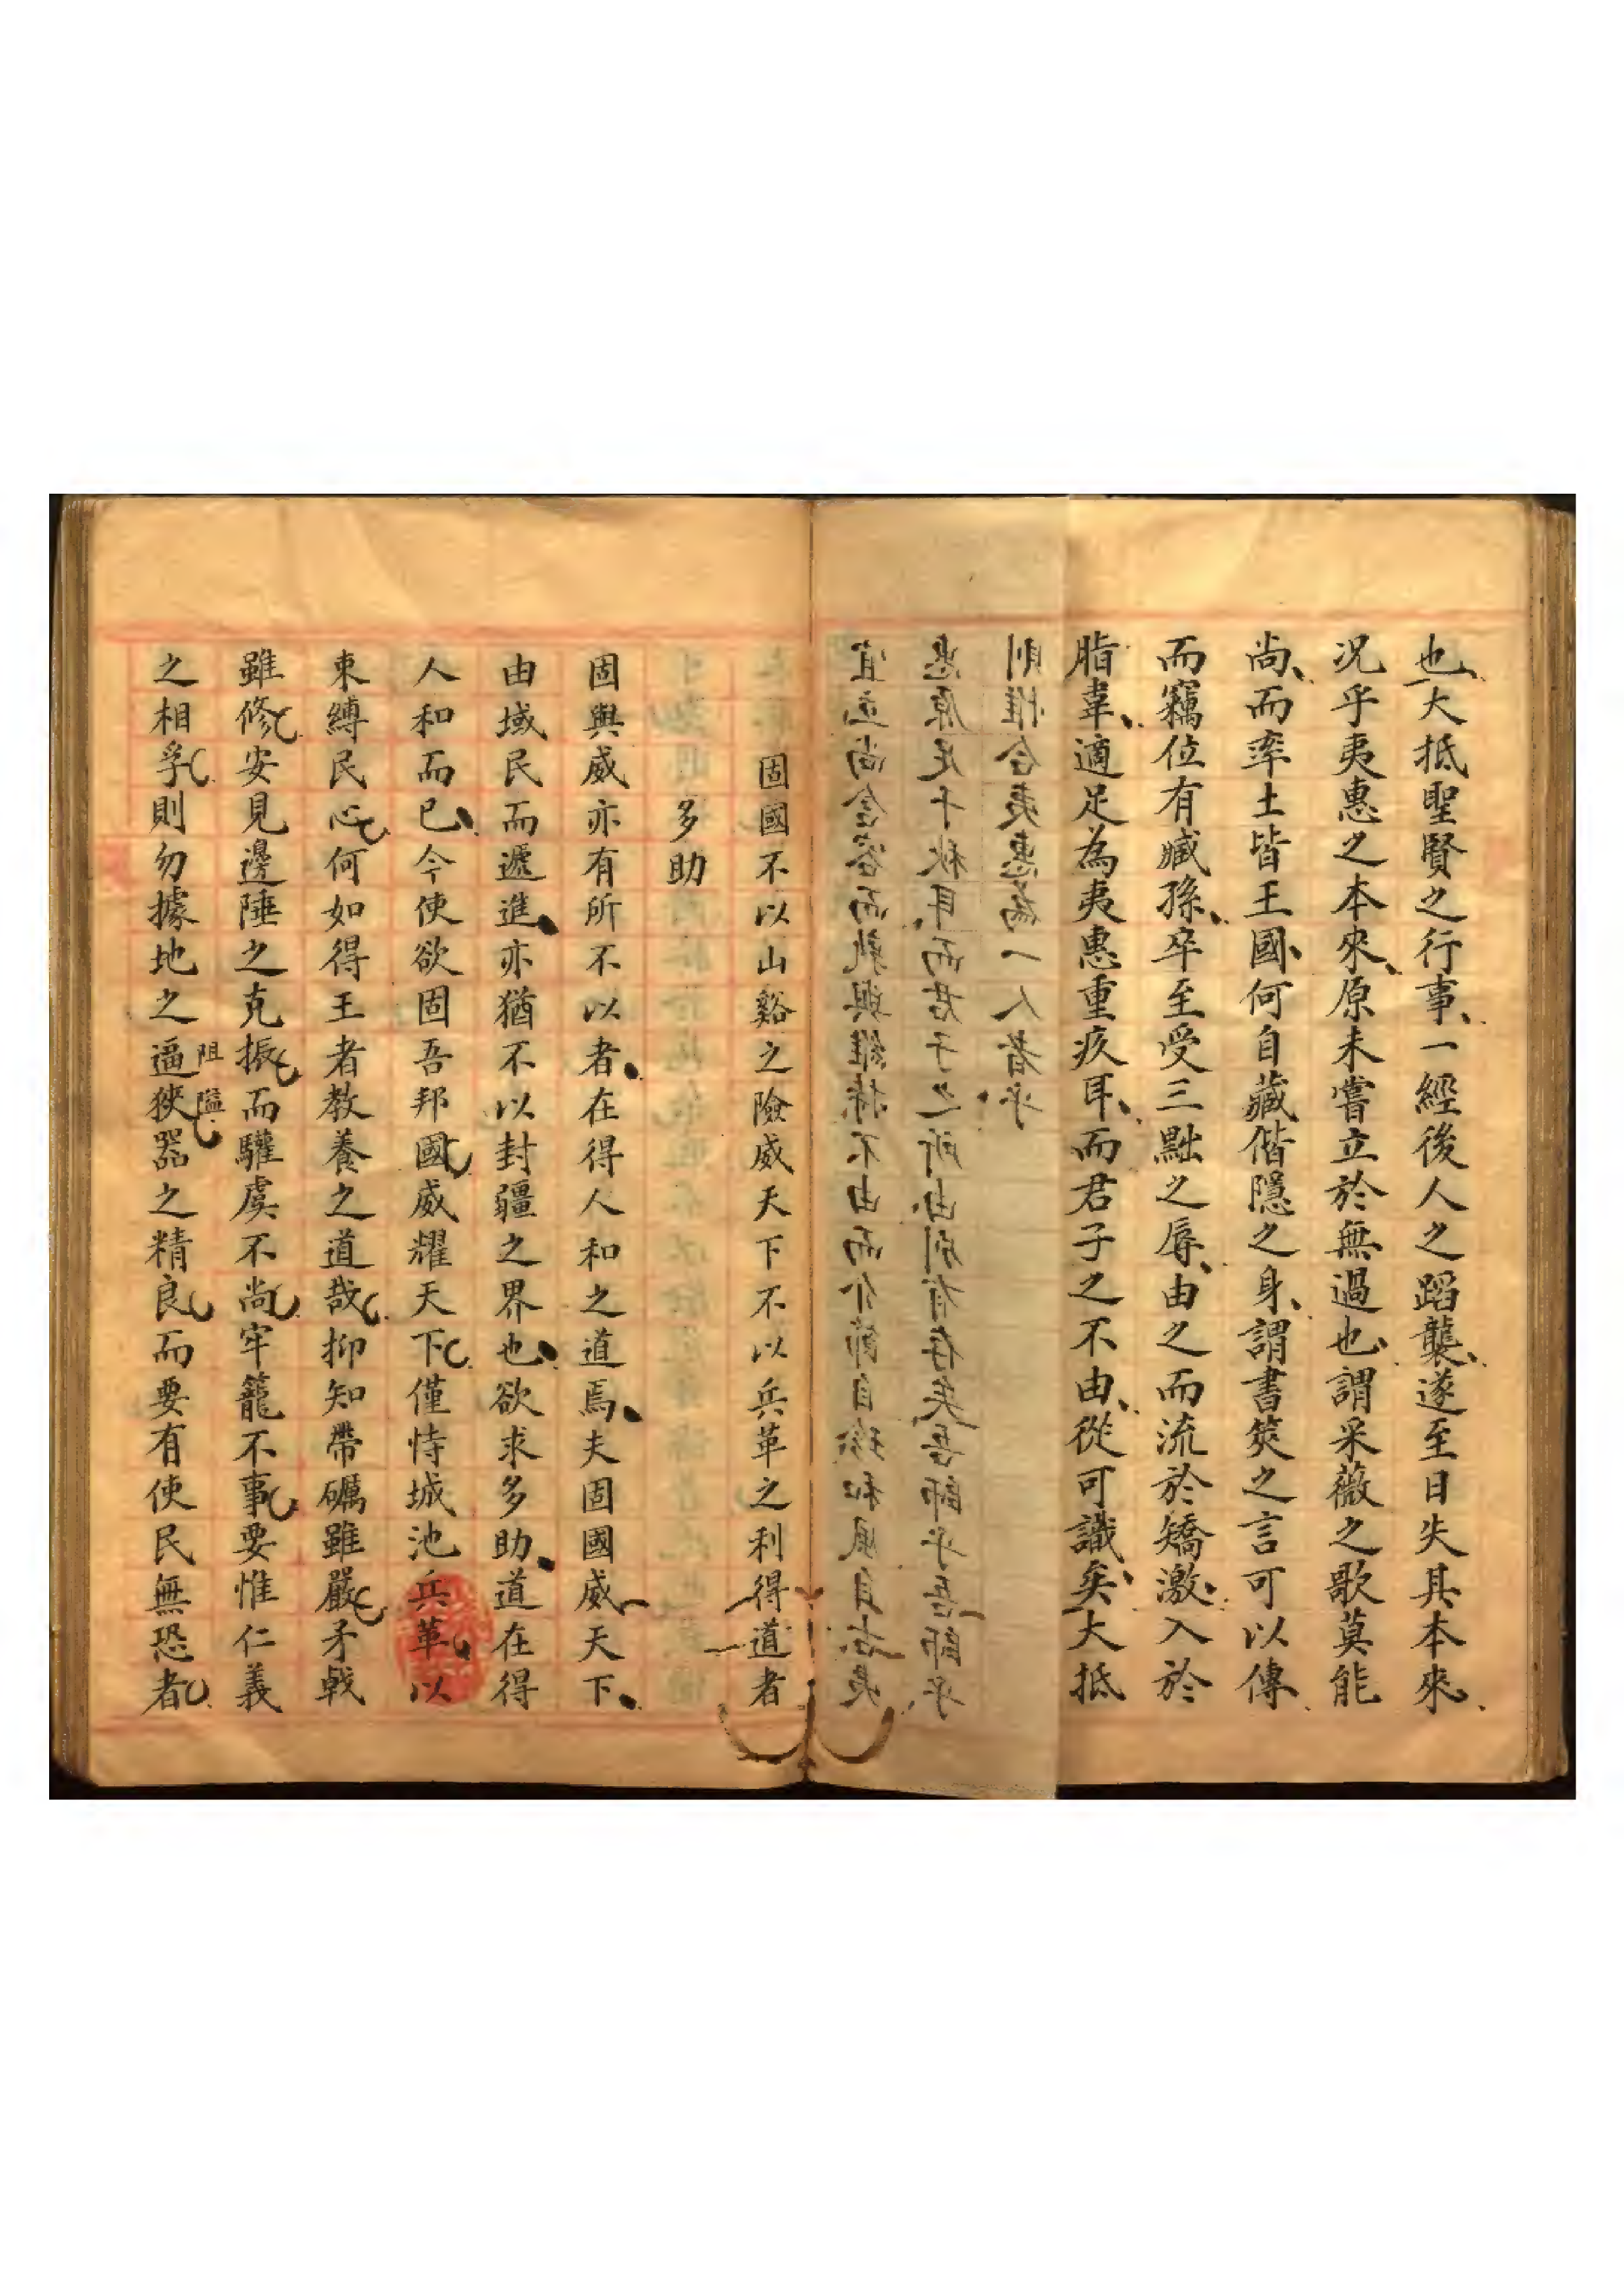 也大抵聖賢之行事一經後人之蹈襲遂至日失其本來
况乎夷惠之本來原未嘗立於無過也謂采薇之歌莫能
尚而率土皆王國何自藏偕隱之身謂書筴之言可以傳
而竊位有臧孫卒至受三黜之辱由之而流於矯激入於
脂韋適足為夷惠重疚耳而君子之不由從可識矣大抵
宜立尚含容而孰與維持不由而介節自珍和風自古夷
惠原足千秋耳而君子之所由別有存矣吾師乎吾師乎
則惟合夷惠為一人者乎
固國不以山谿之險威天下不以兵革之利得道者
多助
固與威亦有所不以者在得人和之道焉夫固國威天下
由域民而遞進亦猶不以封疆之界也欲求多助道在得
人和而已今使欲固吾邦國威耀天下僅恃城池兵革以
束縛民心何如得王者教養之道哉抑知帶礪雖嚴矛戟
雖修安見邊陲之克振而驩虞不尚牢籠不事要惟仁義
之相孚則勿據地之逼狹器之精良而要有使民無恐者
阻隘